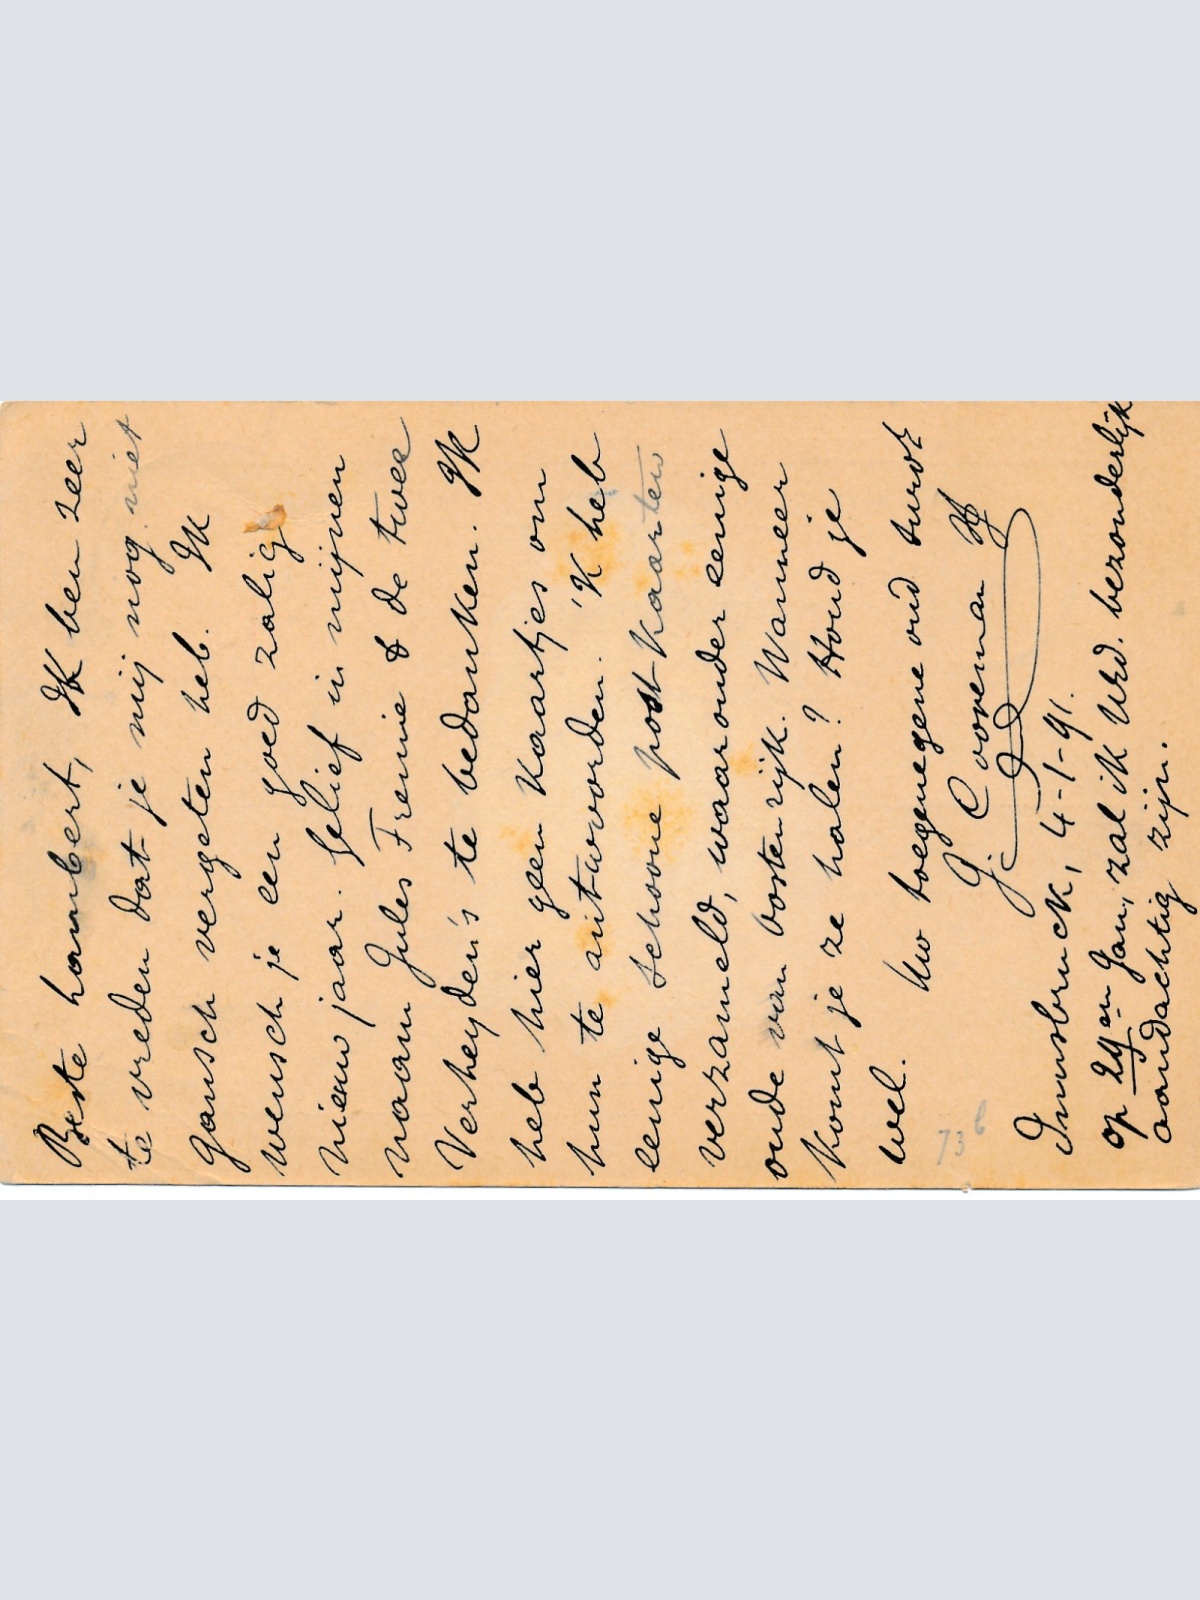 Beste Lambert, Ik ben zeer
te vreden dat je mij nog niet
gansch vergeten heb. Ik
wensch je een goed zalig
nieuw jaar. Gelief in mijnen
naam Jules Fremie & de twee
Verheyden's te bedanken. Ik
heb hier geen kaartjes om
hun te antwoorden. 'K heb
eenige schoone post kaarten
verzameld, waaronder eenige
oude van oostenrijk. Wanneer
komt je ze halen? Houd je
wel. Uw toegenegene oud
J. Cooreman
73b
Innsbruck, 4-1-91.
op 29en Jan, zal ik Ued. bezonderlijk
aandachtig zijn.